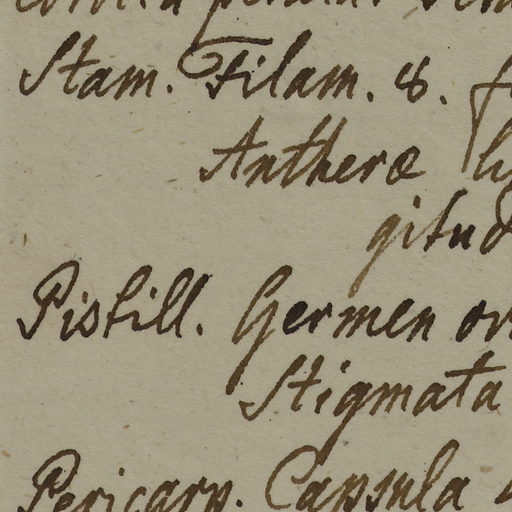 Stam. Filam. 8.
Antheræ
gitud
Pistill. Germen
Stigmata
Pericarp. Capsula